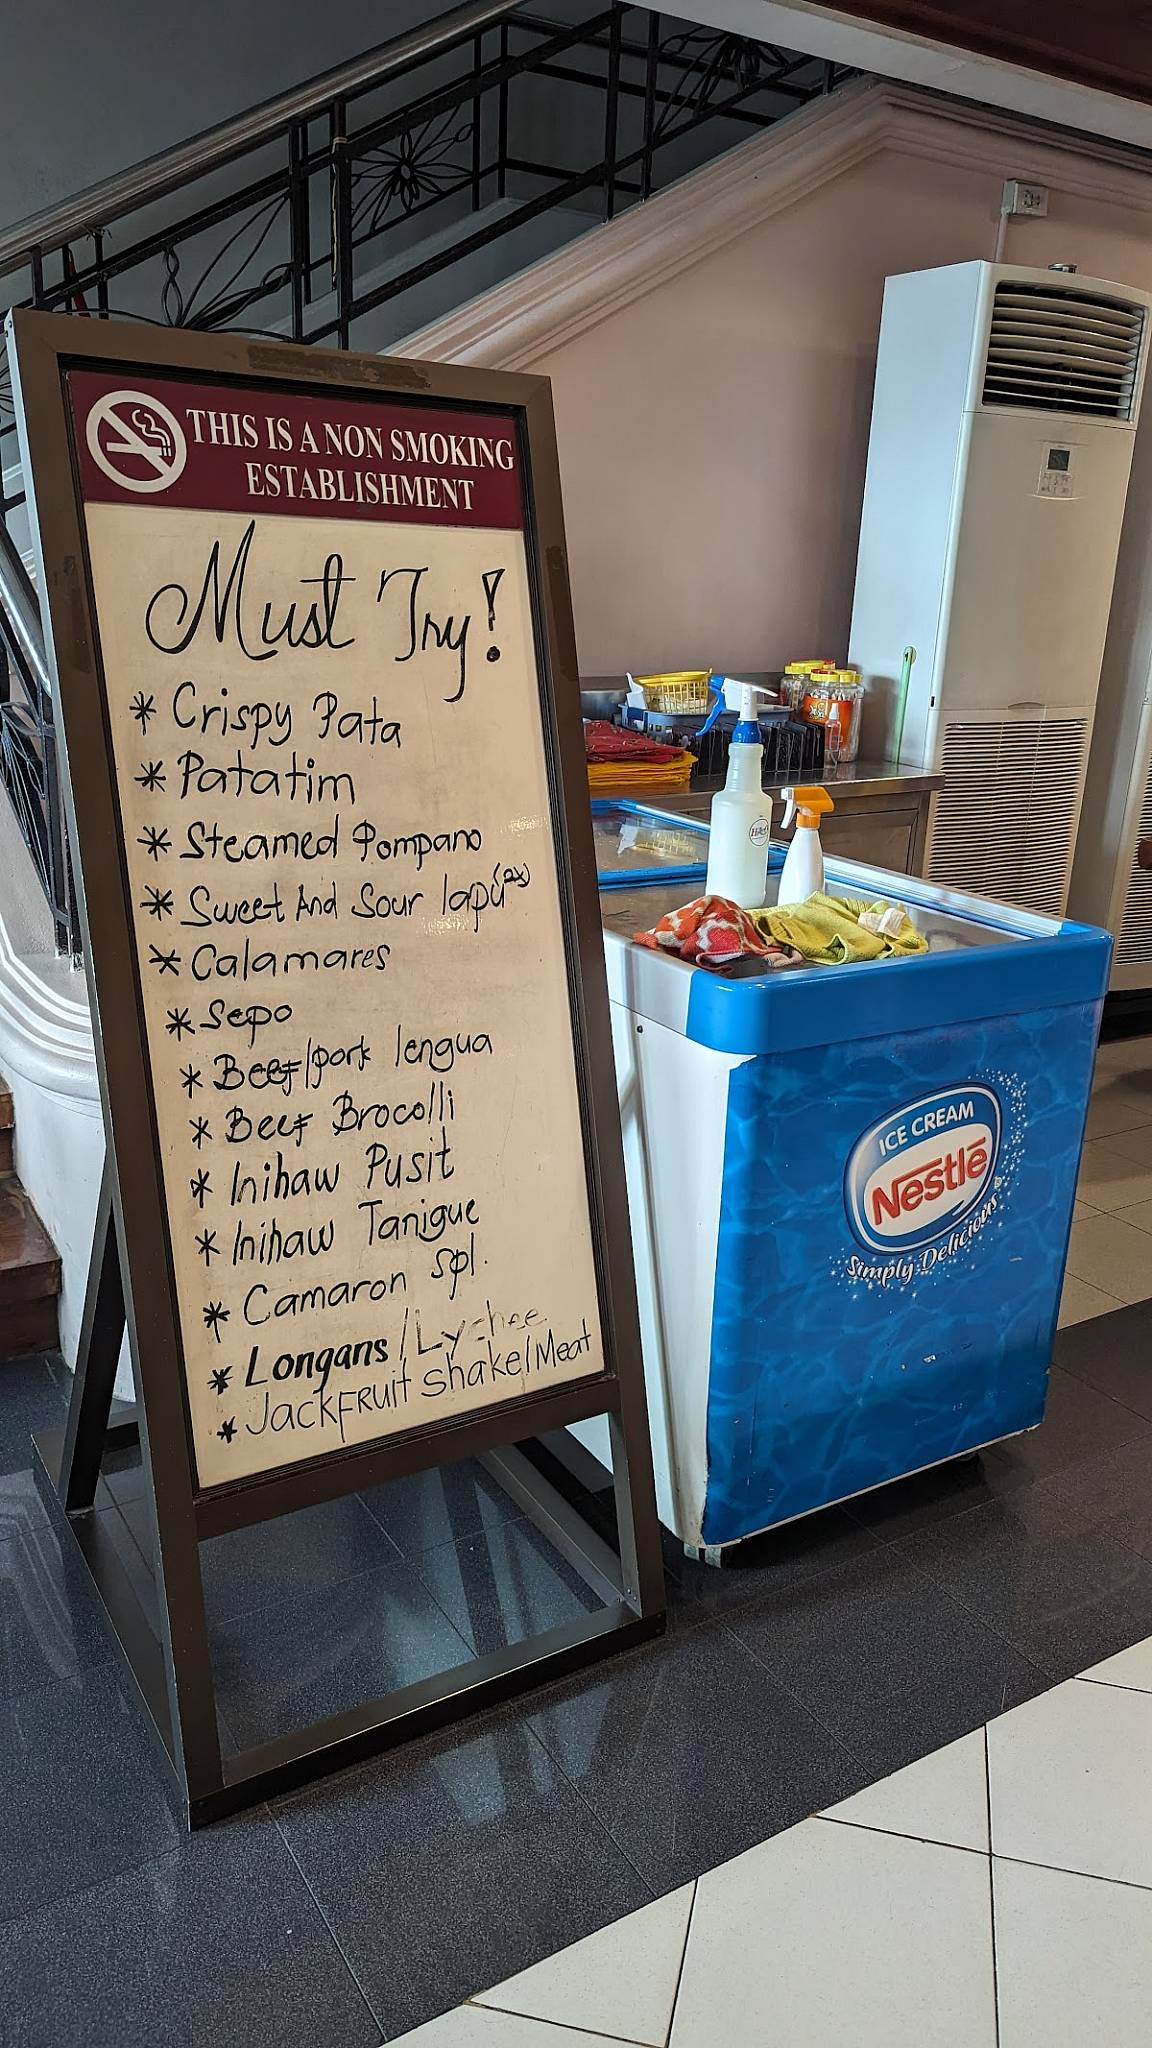 THIS IS A NON SMOKING
ESTABLISHMENT
Must Try!
* Crispy Pata
* Patatim
* Steamed Pompano
* Sweet And Sour lapu (2x)
* Calamares
* Sepo
* Beef/pork lengua
* Beef Brocolli
* Inihaw Pusit
* Inihaw Tanigue
* Camaron spl.
* Longans/Lychee
* JACKFRUIT Shake/Meat
ICE CREAM
Nestlé
Simply Delicious